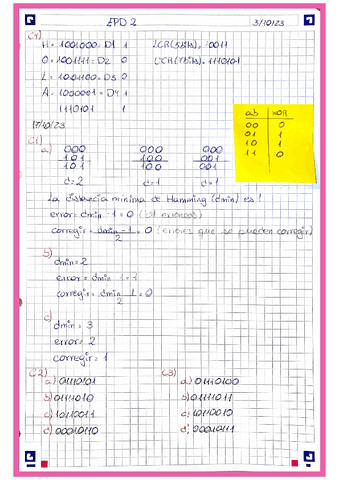 EPD 2 3/10/23
C4)
H = 1001000 = D1 1 LCR (5bits) = 10011
O = 1001111 = D2 0 UCR (7bits) = 1110101
L = 1001100 = D3 0
A = 1000001 = D4 1
1110101 1
ab XOR
00 0
01 1
10 1
11 0
17/10/23
C1)
a) 000 000 000
101 100 001
101 100 001
d=2 d=1 d=1
La distancia mínima de Hamming (dmin) es 1
error = dmin - 1 = 0
corregir = dmin - 1 / 2 = 0 (errores que se pueden corregir)
b)
dmin = 2
error = dmin - 1 = 1
corregir = dmin - 1 / 2 = 0
c)
dmin = 3
error = 2
corregir = 1
C2) C3)
a) 01110101 a) 01110100
b) 01111010 b) 01111011
c) 10110011 c) 10110010
d) 00010110 d) 00010111